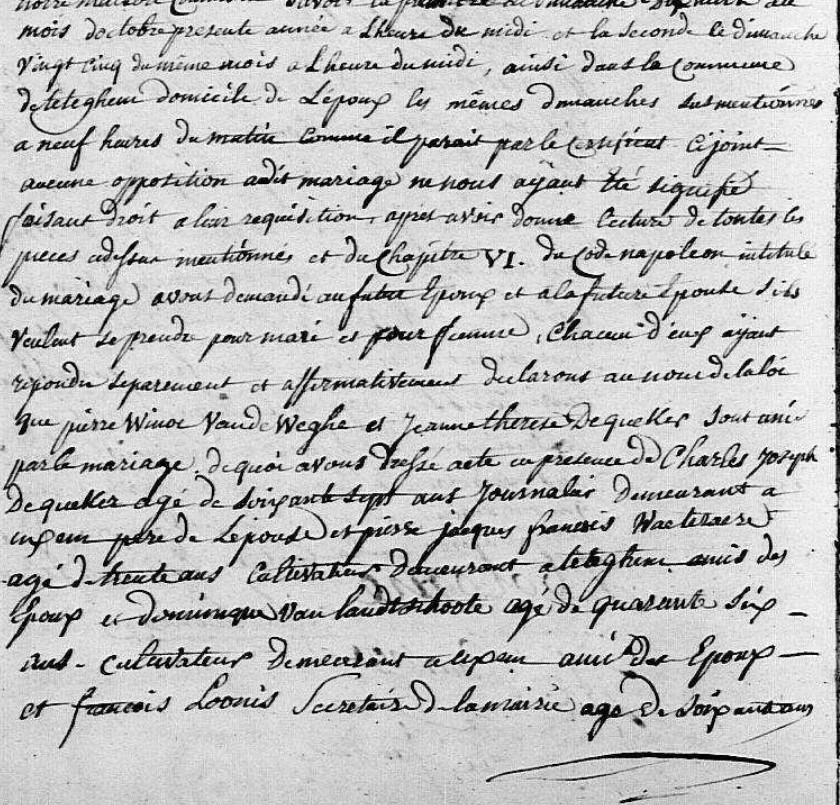 notre maison Commune savoir la premiere le dimanche dix huit du
mois doctobre presente année a Lheure du midi et la seconde le dimanche
Vingt cinq du même mois a Lheure du midi, ainsi dans la Commune
de teteghem domicile de L'epoux les mêmes dimanches susmentionnés
a neuf heures du matin comme il parait par le Certificat Cijoint
aucune opposition audit mariage ne nous ayant Eté signifié
faisant droit a leur requisition, apres avoir donné Lecture de toutes les
pieces cidessus mentionnés et du Chapitre VI. du Code napoleon intitulé
du mariage avons demandé au futur Epoux et a la future Epouse s'ils
Veulent se prendre pour mari et pour femme, Chacun d'eux ayant
repondu separement et affirmativement declarons au nom de la loi
que pierre Winoc Vande Weghe et Jeanne therese Dequeker sont unis
par le mariage. de quoi avons Dressé acte en presence de Charles Joseph
Dequeker agé de soixante sept ans Journalier demeurant a
uxem pere de Lepouse et pierre jacques francois Waeteraere
agé de trente ans Cultivateur Demeurant a teteghem amis des
Epoux et dominique Van landtschoote agé de quarante six
ans - Cultivateur Demeurant a uxem ami des Epoux
et francois Loonis Secretaire de la mairie agé de soixante ans